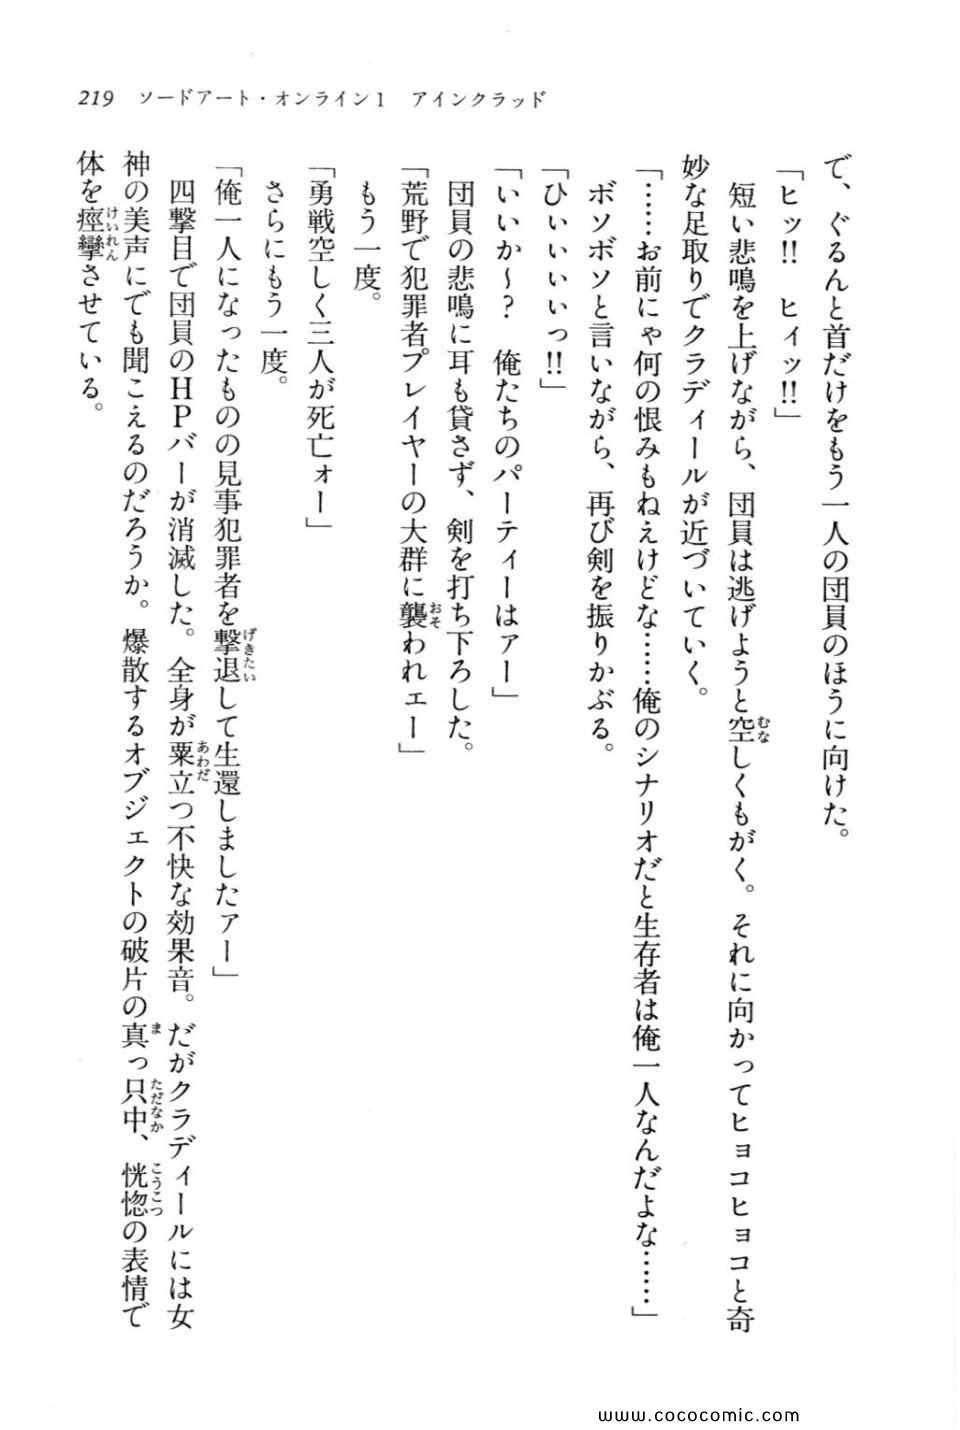 219 ソードアート・オンライン1 アインクラッド
で、ぐるんと首だけをもう一人の団員のほうに向けた。
「ヒッ!! ヒィッ!!」
短い悲鳴を上げながら、団員は逃げようと空しくもがく。それに向かってヒョコヒョコと奇
妙な足取りでクラディールが近づいていく。
「……お前にゃ何の恨みもねえけどな……俺のシナリオだと生存者は俺一人なんだよな……」
ボソボソと言いながら、再び剣を振りかぶる。
「ひぃぃぃぃっ!!」
「いいか～? 俺たちのパーティーはァー」
団員の悲鳴に耳も貸さず、剣を打ち下ろした。
「荒野で犯罪者プレイヤーの大群に襲われェー」
もう一度。
「勇戦空しく三人が死亡ォー」
さらにもう一度。
「俺一人になったものの見事犯罪者を撃退して生還しましたァー」
四撃目で団員のHPバーが消滅した。全身が粟立つ不快な効果音。だがクラディールには女
神の美声にでも聞こえるのだろうか。爆散するオブジェクトの破片の真っ只中、恍惚の表情で
体を痙攣させている。
www.cococomic.com